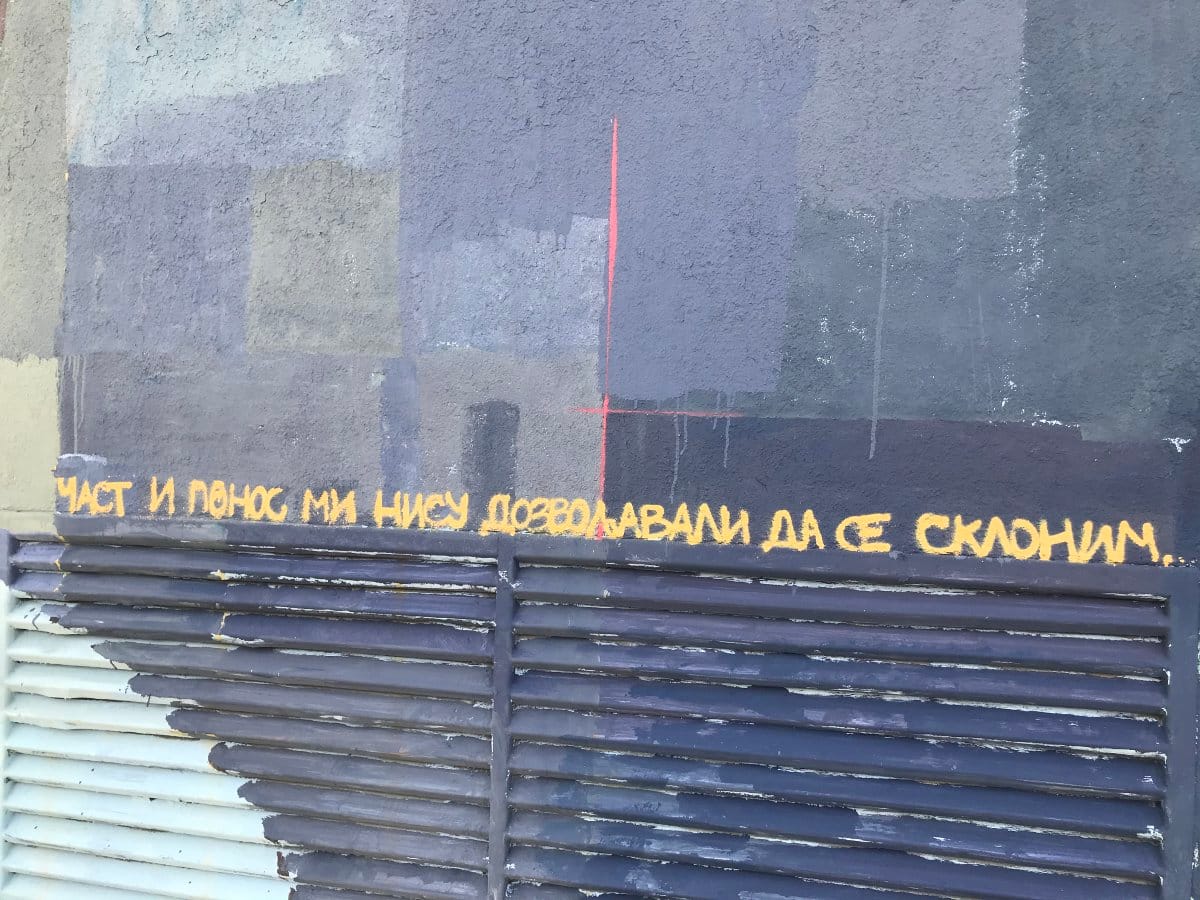 ЧАСТ И ПОНОС МИ НИСУ ДОЗВОЉАВАЛИ ДА СЕ СКЛОНИМ.